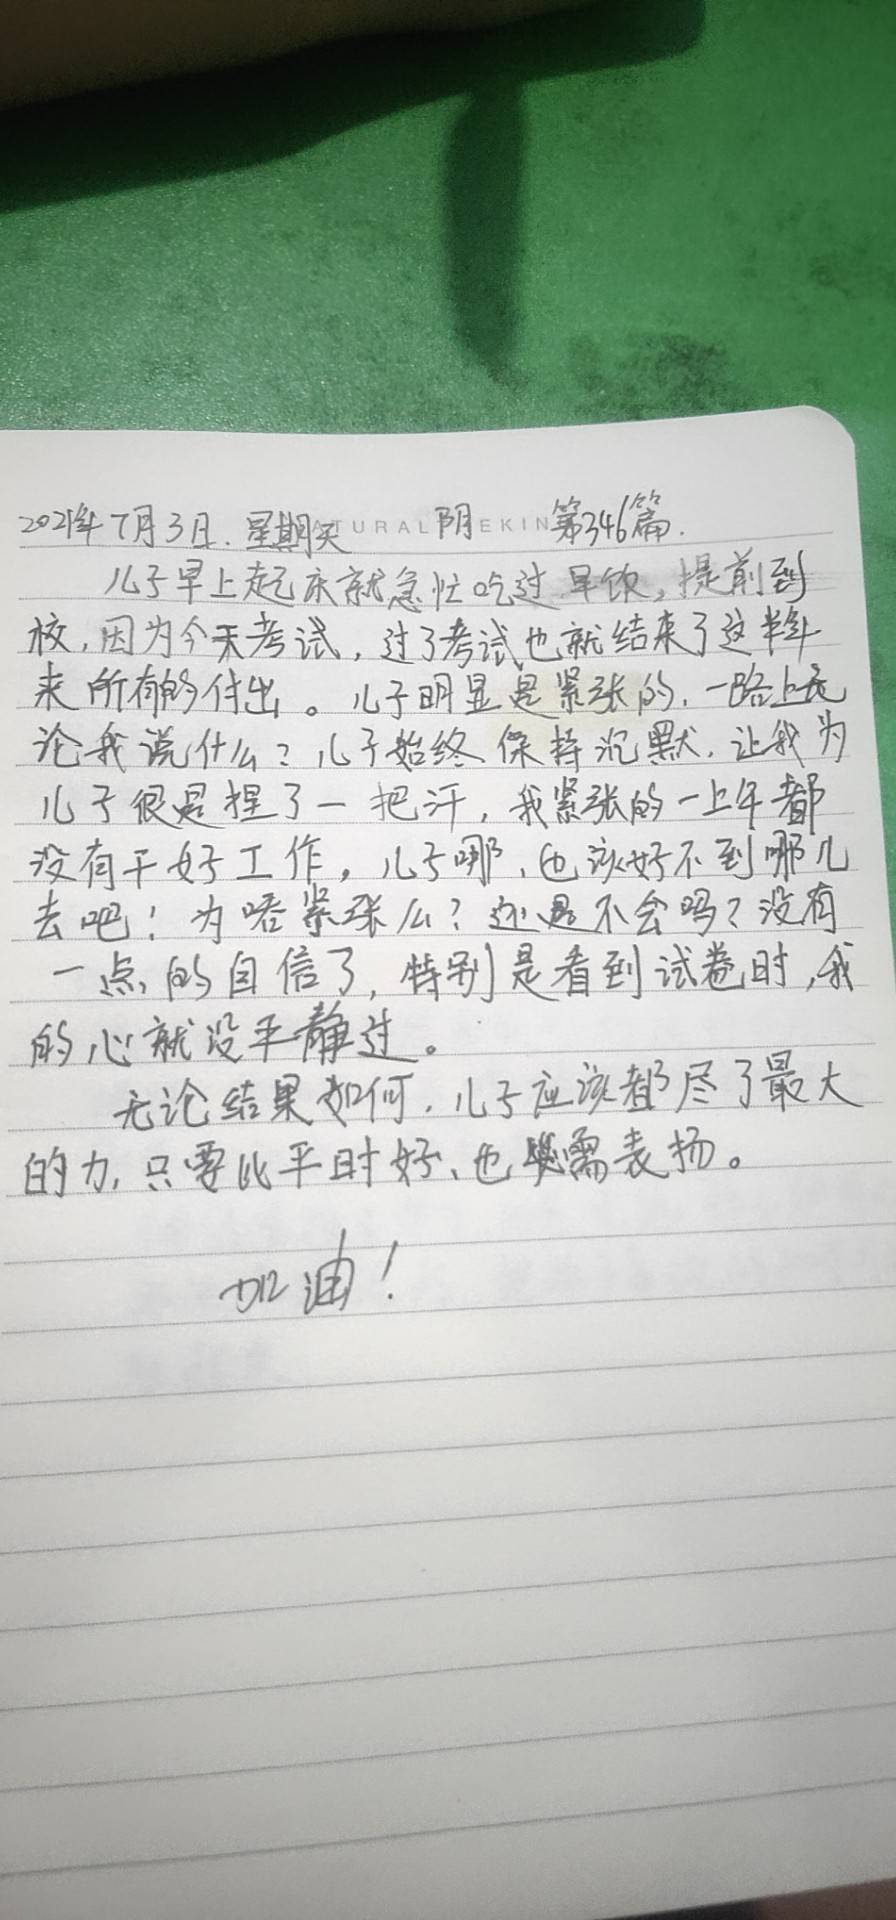 2021年7月3日.星期天 NATURAL EEKIN 阴 第346篇.
儿子早上起床就急忙吃过早饭，提前到
校，因为今天考试，过了考试也就结束了这半年
来所有的付出。儿子明显是紧张的，一路上无
论我说什么？儿子始终保持沉默，让我为
儿子很是捏了一把汗，我紧张的一上午都
没有干好工作，儿子哪，也该好不到哪儿
去吧！为啥紧张么？还是不会吗？没有
一点的自信了，特别是看到试卷时，我
的心就没平静过。
无论结果如何，儿子应该都尽了最大
的力，只要比平时好、也需表扬。
加油！